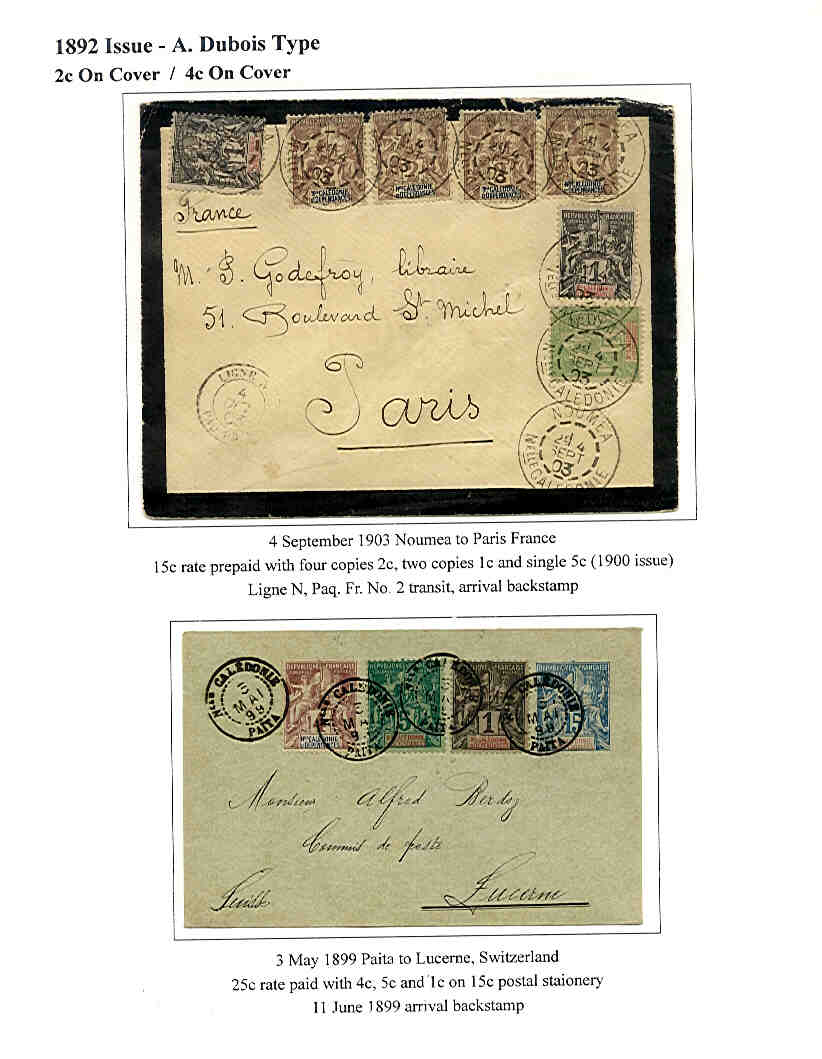 1892 Issue - A. Dubois Type
2c On Cover / 4c On Cover
France
M. J. Godefroy, libraire
51. Boulevard St. Michel
Paris
LIGNE N
4
REPUBLIQUE FRANCAISE
1
NOUMEA
4
SEPT
03
CALEDONIE
NOUMEA
4
SEPT
03
NLLE CALEDONIE
4 September 1903 Noumea to Paris France
15c rate prepaid with four copies 2c, two copies 1c and single 5c (1900 issue)
Ligne N, Paq. Fr. No. 2 transit, arrival backstamp
NLLE CALÉDONIE
3
MAI
99
PAITA
REPUBLIQUE FRANCAISE
4
5
1
15
Monsieur Alfred Berdoz
Commis de poste
Lucerne
Suisse
3 May 1899 Paita to Lucerne, Switzerland
25c rate paid with 4c, 5c and 1c on 15c postal staionery
11 June 1899 arrival backstamp